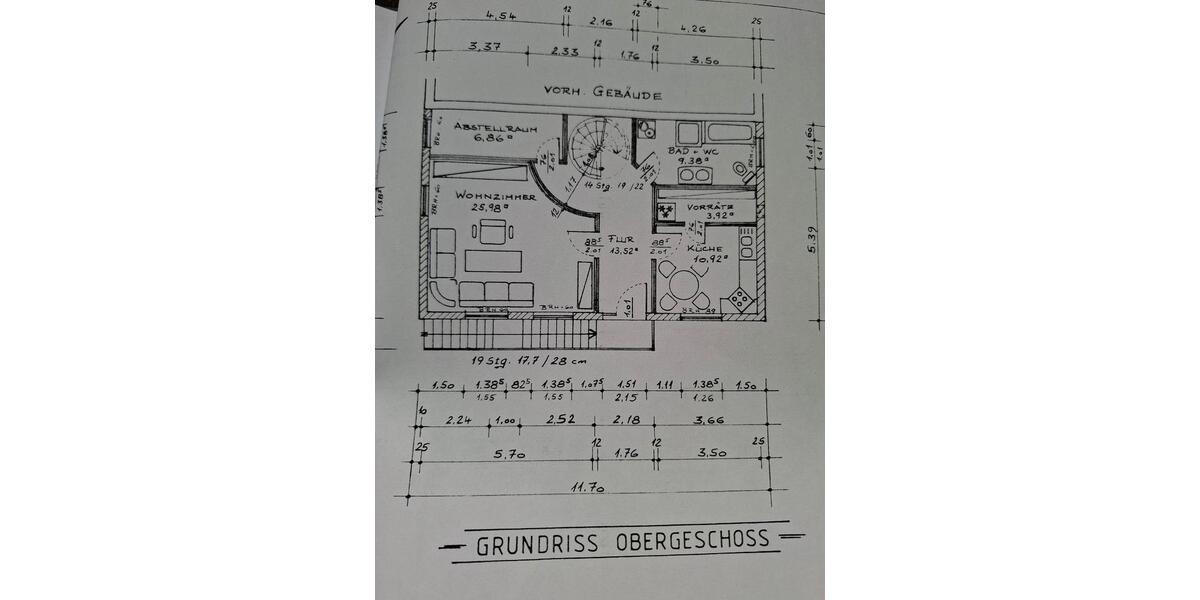 76
25 12 12 25
4.54 2.16 4.26
12 12
3,37 2.33 1.76 3.50
VORH. GEBÄUDE
ABSTELLRAUM
6,86
BAD + WC
9.38
76
2.01
76
1.17
14 Stg. 19/22
WOHNZIMMER
25,98
12
VORRÄTE
3,92
76
2.01
88⁵
2.01
FLUR
13,52
88⁵
2.01
KÜCHE
10,92
1.01
BRH=60
60
1.01
1.01
5.39
1.38⁵
19 Stg. 17,7/28 cm
1,50 1.38⁵ 82⁵ 1.38⁵ 1.07⁵ 1.51 1.11 1.38⁵ 1.50
1.55 1.55 2.15 1.26
2.24 1,00 2.52 2.18 3.66
25 12 12 25
5.70 1.76 3.50
11.70
GRUNDRISS OBERGESCHOSS